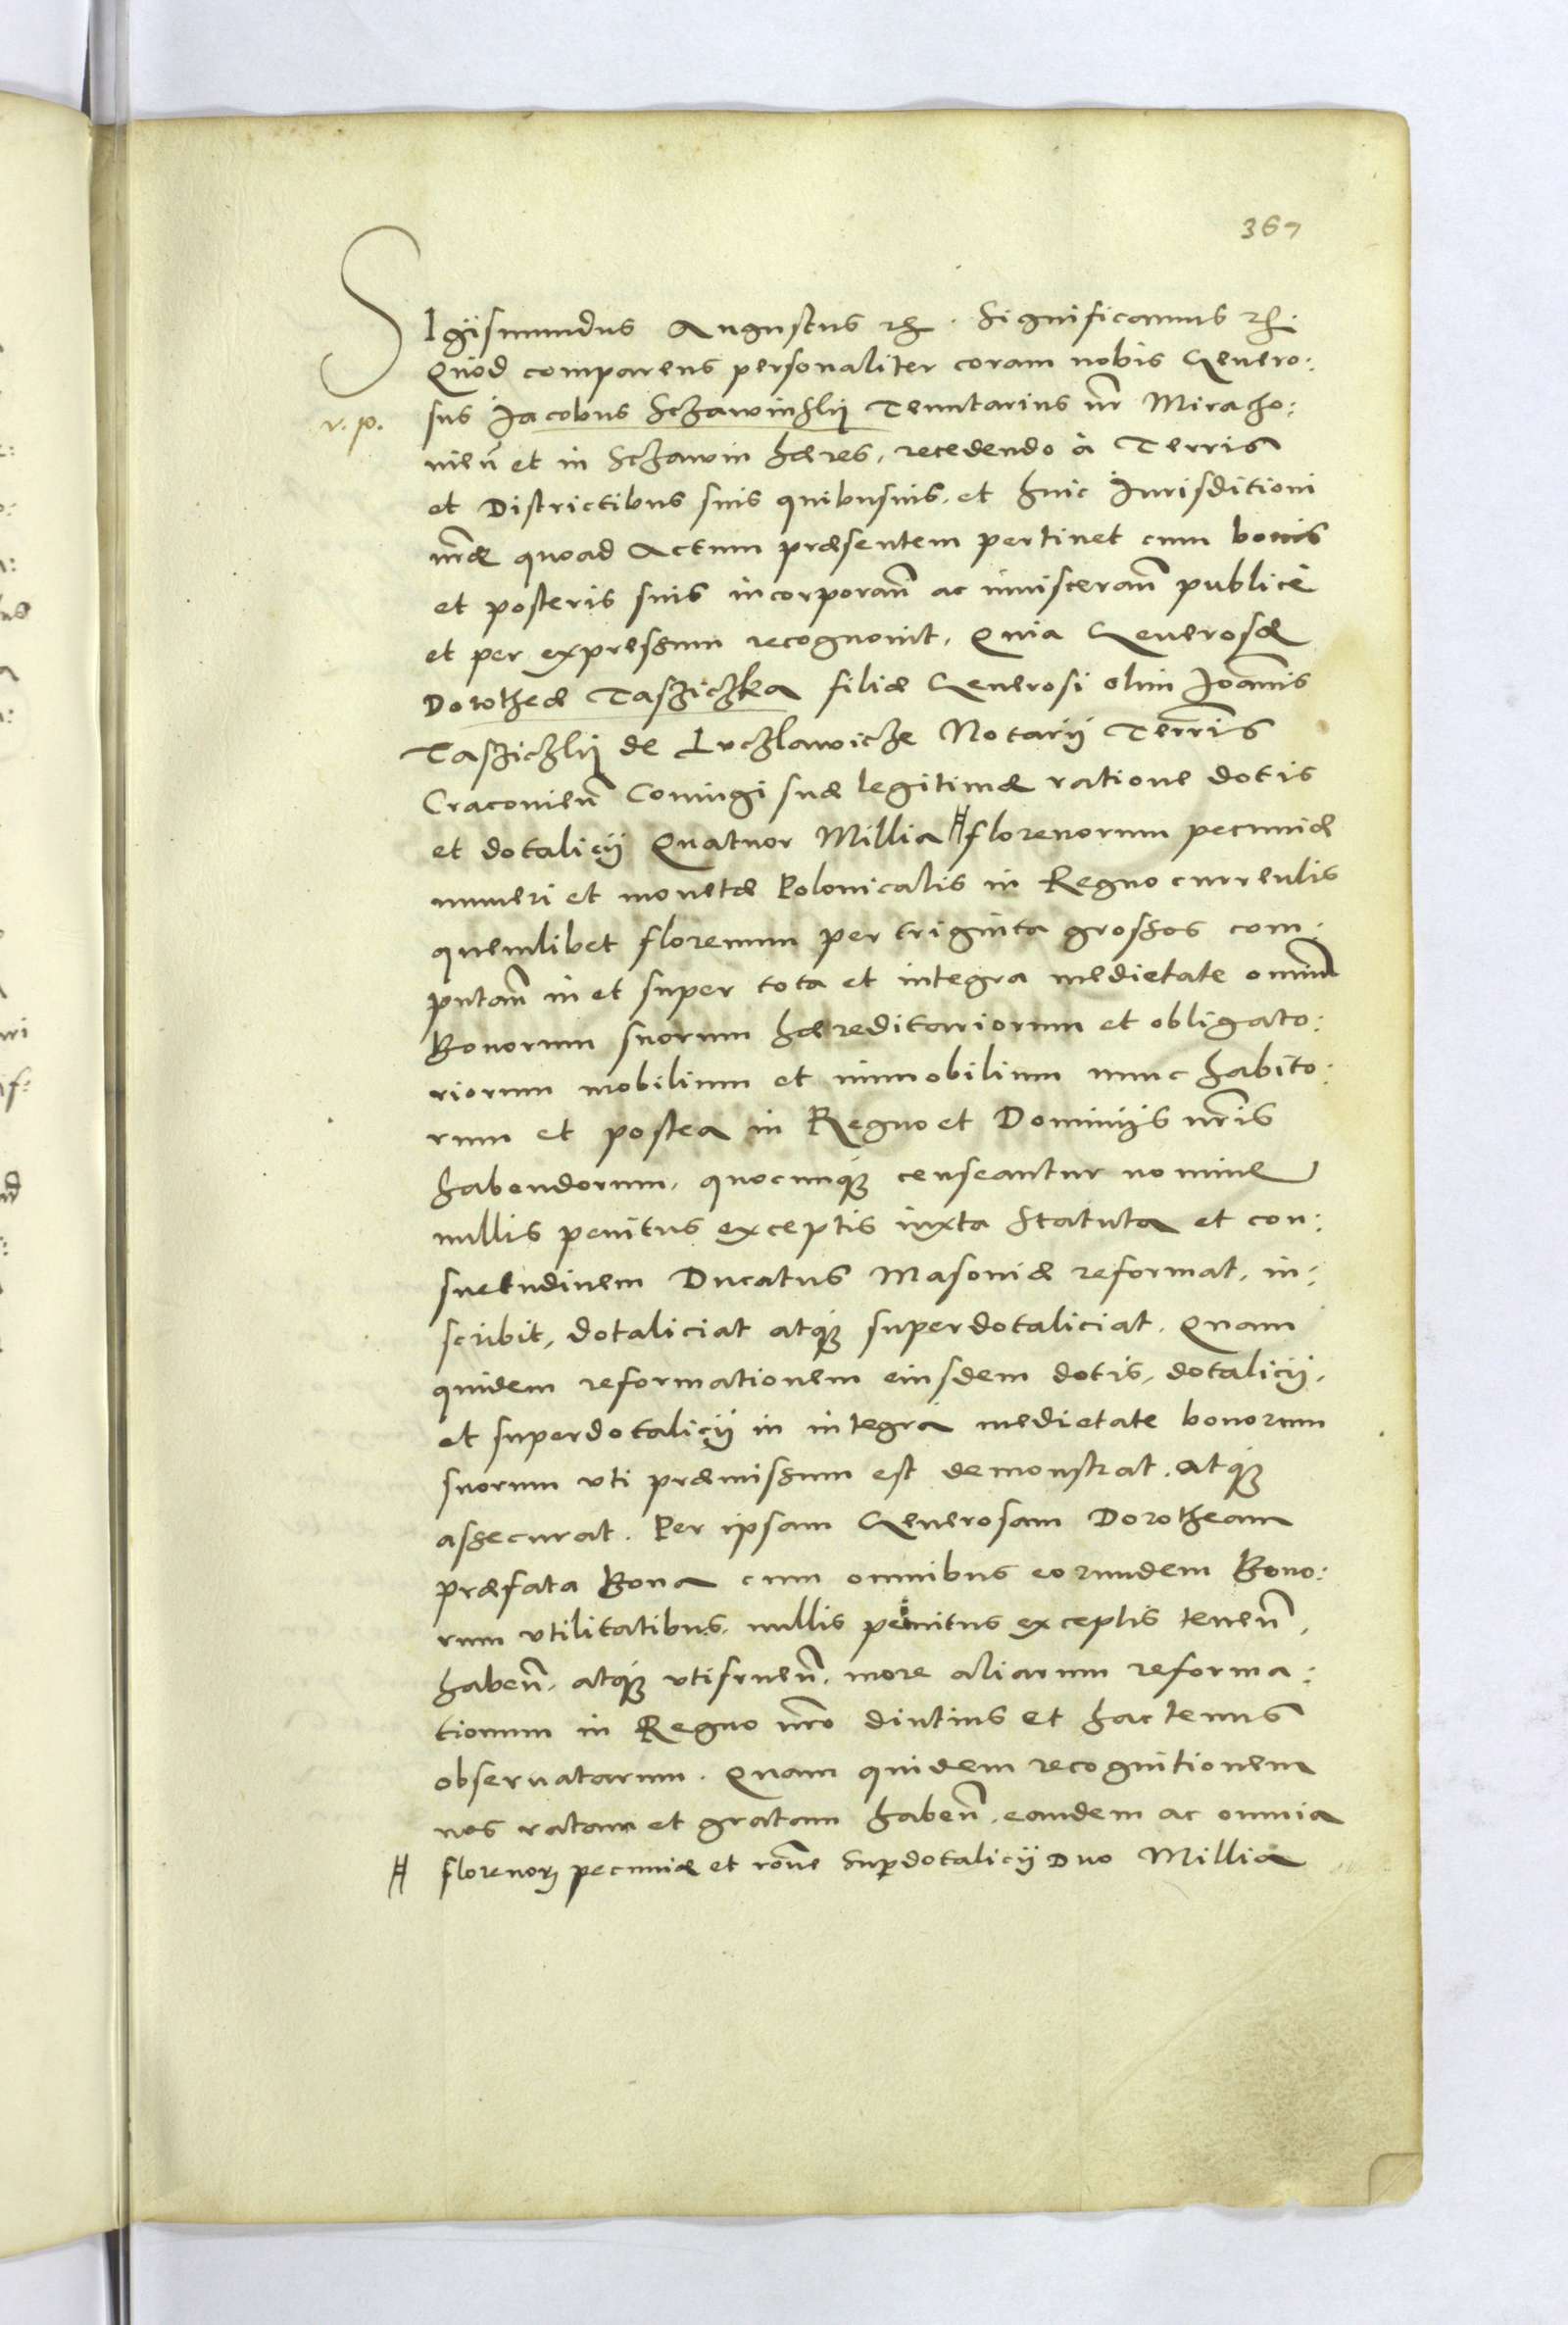 367
Sigismundus Augustus etc. Significamus etc.
Quod comparens personaliter coram nobis Genero:
v. p. sus Jacobus Sczawinskij Tenutarius nr Miracho:
uieñ et in Sczawin hæres, recedendo à Terris
et Districtibus suis quibusuis, et huic Jurisditioni
nræ quoad Actum præsentem pertinet cum bonis
et posteris suis incorporañ ac inuisceran̄ publicè
et per expressum recognouit. Quia Generosæ
Dorotheæ Tasziczka filiæ Generosi olim Joannis
Tasziczkij de Luczlawicze Notarij Terris
Cracouieñ Coniugi suæ legitimæ ratione dotis
et dotalicij Quatuor Millia # florenorum pecuniæ
numeri et monetæ Polonicalis in Regno currentis
quemlibet florenum per triginta grossos com:
putañ in et super tota et integra medietate omniũ
Bonorum suorum hæreditariorum et obligato:
riorum mobilium et immobilium nunc habito:
rum et postea in Regno et Dominijs nris
habendorum, quocunq; censeantur nomine
nullis penitus exceptis iuxta Statuta et con:
suetudinem Ducatus Masouiæ reformat, in:
scribit, dotaliciat atq; superdotaliciat. Quam
quidem reformationem eiusdem dotis, dotalicij,
et superdotalicij in integra medietate bonorum
suorum vti præmissum est demonstrat, atq;
assecurat. Per ipsam Generosam Dorotheam
præfata Bona cum omnibus eorundem Bono:
rum vtilitatibus, nullis penitus exceptis teneñ,
habeñ, atq; vtifrueñ, more aliarum reforma:
tionum in Regno nro diutius et hactenus
obseruatarum. Quam quidem recognitionem
nos ratam et gratam habeñ, eandem ac omnia
# florenorum pecuniæ et rone superdotalicij Duo Millia